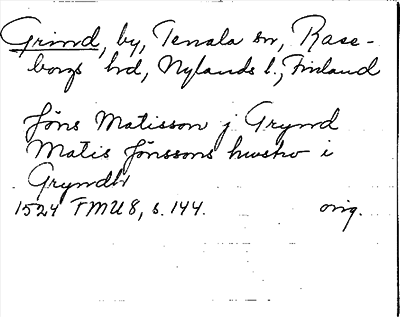 Grind, by, Tenala sn, Rase-
borgs hd, Nylands l., Finland
Jöns Matisson j Grynd
Matis Jönssons hwstro i
Gryndh
1524 FMU 8, s. 144. orig.